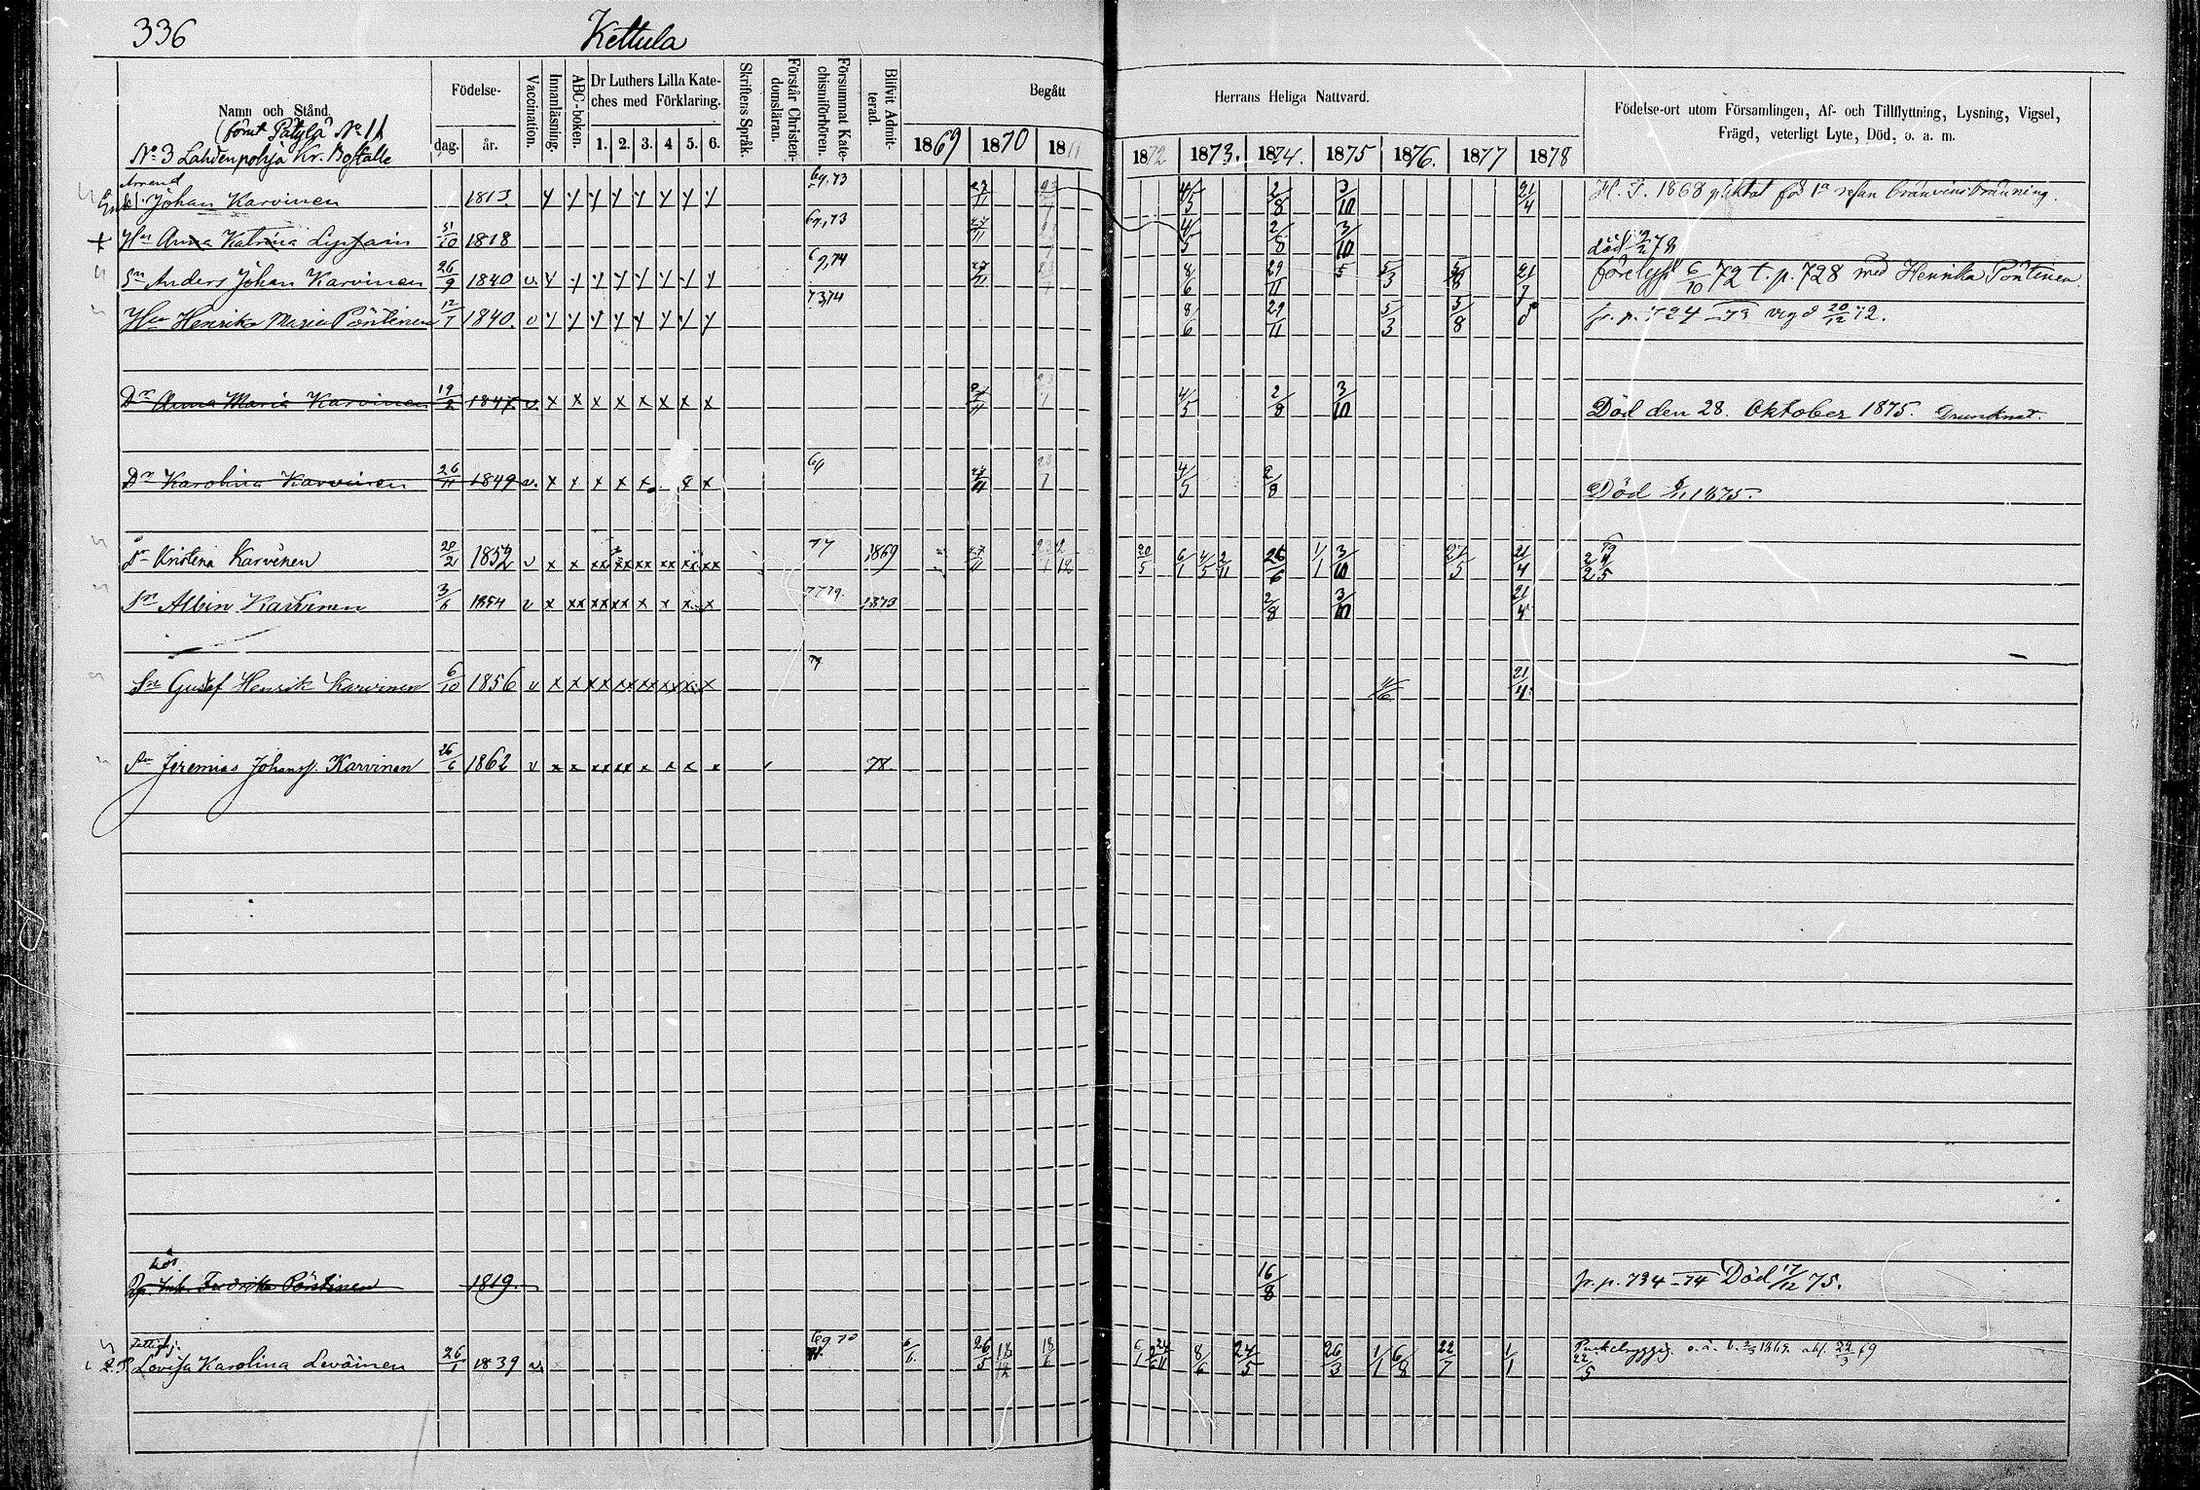 336
Kettula
Namn och Stånd.
(förut Pätylä No 11
No 3 Lahdenpohja Kr. Boställe
Födelse-
dag. år.
Vaccination.
Innanläsning.
ABC-boken.
Dr Luthers Lilla Kate-
ches med Förklaring.
1. 2. 3. 4 5. 6.
Skriftens Språk.
Förstår Christen-
domsläran.
Försummat Kate-
chismiförhören.
Blifvit Admit-
terad.
Begått
Herrans Heliga Nattvard.
1869 1870 1871 1872 1873. 1874. 1875 1876. 1877 1878
Födelse-ort utom Församlingen, Af- och Tillflyttning, Lysning, Vigsel,
Frägd, veterligt Lyte, Död, o. a. m.
Arrend
Johan Karvinen 1813 y y y y y y y y 69,73 27/11 4/5 2/8 3/10 21/4 H. T. 1868 pliktat för 1a resan bränvins bränning.
Hu Anna Katrina 31/10 1818 69,73 27/11 4/5 2/8 3/10 död 78
Sn Anders Johan Karvinen 26/9 1840 v. y y y y y y y y 69,74 27/11 8/6 29/11 5 5/3 5/8 21/7 förelyst 6/10 72 t. p. 728 med Henrika Pöntinen
Hu Henrika Maria Pöntinen 12/7 1840. v y y y y y y y y 73,74 8/6 29/11 5/3 5/8 fr. p. 724 – 73 vigd 20/12 72.
Dr Anna Maria Karvinen 19/2 1847. v. x x x x x x x x 27/11 4/5 2/8 3/10 Död den 28. Oktober 1875. Drunknat.
Dr Karolina Karvinen 26/11 1849 v. x x x x x x x 69 27/11 4/5 2/8 Död 1875.
Dr Kristina Karvinen 20/2 1852 v x x xx xx xx xx xx xx 77 1869 27/11 20/5 6/1 4/5 2/11 26/6 1/1 3/10 27/5 21/4
Sn Albin Karvinen 3/6 1854 v x xx xx xx x x x x 77 79. 1873 2/8 3/10 21/4
Sn Gustef Henrik Karvinen 6/10 1856 v x x xx xx xx xx xx x 79 4/6 21/4
Sn Jeremias Johanss. Karvinen 26/6 1862 v x x xx xx x x x x 78
Lös.
Enk. Fredrika Pöntinen 1819. 16/8 fr. p. 734 – 74 Död 17/12 75.
Fattighj:
Lovisa Karolina Leväinen 26/1 1839 v. 69 70 6/6 26/5 18/12 18/6 8/6 24/5 26/3 1/1 6/8 22/7 1/1 Puckelryggig. 22/3 69
22/5